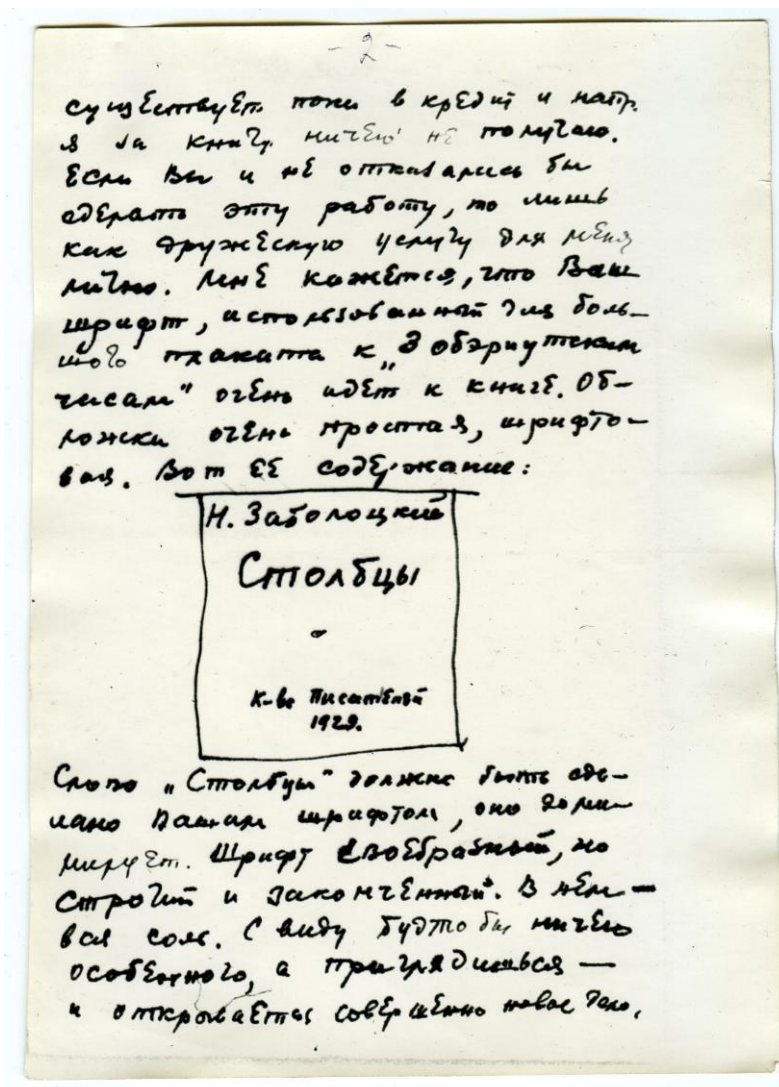 - 2 -
существует пока в кредит и напр.
я за книгу ничего не получаю.
Если Вы и не отказались бы
сделать эту работу, то лишь
как дружескую услугу для меня
лично. Мне кажется, что Ваш
шрифт, использованный для боль-
шого плаката к „3 обэриутским
часам" очень идет к книге. Об-
ложка очень простая, шрифто-
вая. Вот ее содержание:
Н. Заболоцкий
Столбцы
К-во Писателей
1929.
Слово „Столбцы" должно быть сде-
лано Вашим шрифтом, оно доми-
нирует. Шрифт своебразный, но
строгий и законченный. В нем —
вся соль. С виду будто бы ничего
особенного, а приглядишься —
и открывается совершенно новое дело,